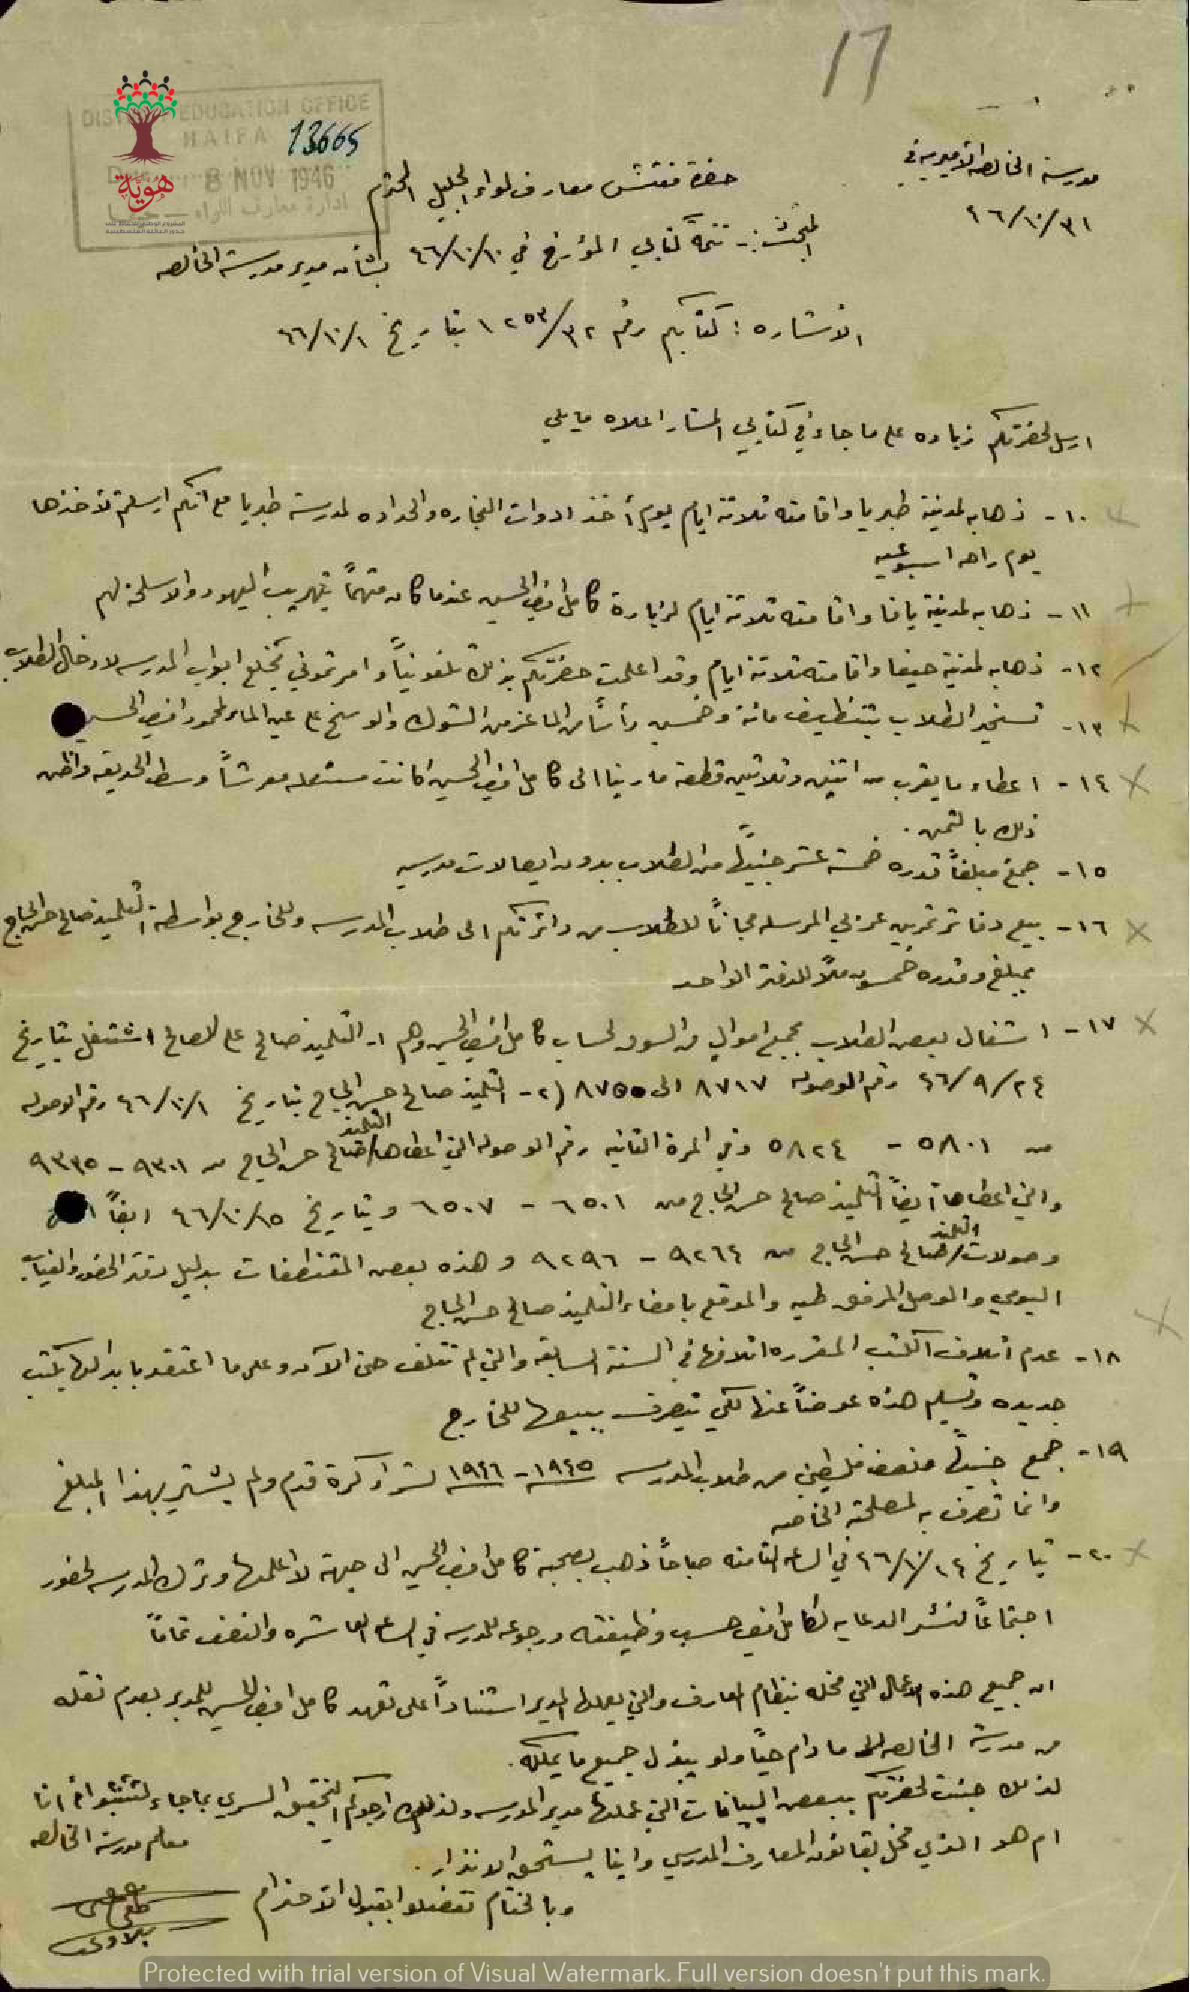 17
DISTRICT EDUCATION OFFICE
HAIFA
13665
8 NOV 1946
ادارة معارف اللواء - حيفا
هوية
مدرسة الخالصه الاميريه في
٤٦/١٠/٣١
حضرة مفتش معارف لواء الجليل المحترم
المبحث :- تتمة كتابي المؤرخ في ٤٦/١٠/١٠ بشأن مدير مدرسة الخالصه
الاشاره : كتابكم رقم ١٢٥٣/٣٢ بتاريخ ٤٦/١٠/١
ارسل لحضرتكم زياده على ما جاء في كتابي المشار اعلاه ما يلي
١٠- ذهابه لمدينة طبريا واقامته ثلاثة ايام يوم أخذ ادوات النجاره والحداده لمدرسة طبريا مع انكم ارسلتم لأخذها
يوم راحه اسبوعيه
١١- ذهابه لمدينة يافا واقامته ثلاثة ايام لزيارة كامل افندي الحسين عندما كان متهماً بتهريب اليهود والاسلحة لهم
١٢- ذهابه لمدينة حيفا واقامته ثلاثة ايام وقد اعلمت حضرتكم بذلك تلفونياً وامرتموني بخلع ابواب المدرسه لادخال الطلاب
١٣- تسخير الطلاب بتنظيف مائة وخمسين رأساً من الماعز من الشوك والوسخ على عين الماء لمحمود افندي الحسين
١٤- اعطاء ما يقرب من اثنين وثلاثين قطعة مارينا الى كامل افندي الحسين كانت مستعمله معرشاً وسط الحديقه واظن
ذلك بالثمن.
١٥- جمع مبلغاً قدره خمسة عشر جنيهاً من الطلاب بدون ايصالات مدرسيه
١٦- بيع دفاتر تمرين عربي المرسله مجاناً للطلاب من دائرتكم الى طلاب المدرسه وللخارج بواسطة التلميذ صالح حسن الحاج
بمبلغ وقدره خمسون ملاً للدفتر الواحد
١٧- اشغال بعض الطلاب بجمع اموال من السوق لحساب كامل افندي الحسين وهم ١- التلميذ صالح علي الصالح اشتغل بتاريخ
٤٦/٩/٢٤ رقم الوصوله ٨٧١٧ الى ٨٧٥٥ (٢- التلميذ صالح حسن الحاج بتاريخ ٤٦/١٠/١ رقم الوصوله
من ٥٨٠١ - ٥٨٢٤ وفي المرة الثانيه رقم الوصوله التي اعطاها التلميذ صالح حسن الحاج من ٩٣٠١ - ٩٣٣٥
والتي اعطاها ايضاً التلميذ صالح حسن الحاج من ٦٥٠١ - ٦٥٠٧ وبتاريخ ٤٦/١٠/١٥ ايضاً
وصولات التلميذ صالح حسن الحاج من ٩٢٦٤ - ٩٢٩٦ وهذه بعض المقتطفات بدليل دفتر الحضور والغياب
اليومي والوصل المرفق طيه والموقع بامضاء التلميذ صالح حسن الحاج
١٨- عدم اتلاف الكتب المقرره اتلافها في السنة السابقه والتي لم تتلف حتى الآن وعلى ما اعتقد بابدالها بكتب
جديده وتسليم هذه عوضاً عنها لكي يتصرف ببيعها للخارج
١٩- جمع جنيهاً ونصف فلسطيني من طلاب المدرسه ١٩٤٥ - ١٩٤٦ لشراء كرة قدم ولم يشتري بهذا المبلغ
وانما تصرف به لمصلحته الخاصه
٢٠- بتاريخ ٤٦/١٠/٢٤ في الساعه الثامنه صباحاً ذهب بصحبة كامل افندي الحسين الى جهة لا اعلمها وترك المدرسه لحضور
اجتماعاً لنشر الدعايه لكامل افندي حسب وظيفته ورجوعه للمدرسه في الساعه العاشره والنصف تماماً
ان جميع هذه الاعمال التي مخله بنظام المعارف والتي يعملها المدير استناداً على تعهد كامل افندي الحسين للمدير بعدم نقله
من مدرسة الخالصه ما دام حياً ولو يبذل جميع ما يملكه.
لذلك جئت لحضرتكم ببعض البيانات التي عملها مدير المدرسه ولذلك ارجوكم التحقيق السري بما جاء لتثبتوا أانا
ام هو الذي مخل بقانون المعارف المدرسي واينا يستحق الانذار.
وبالختام تفضلوا بقبول الاحترام
معلم مدرسة الخالصه
Protected with trial version of Visual Watermark. Full version doesn't put this mark.